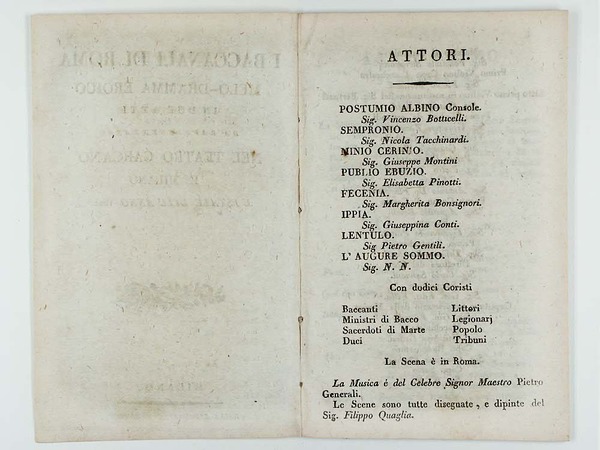 I BACCANALI DI ROMA
MELO-DRAMMA EROICO
NEL TEATRO CARCANO
ATTORI.
POSTUMIO ALBINO Console.
Sig. Vincenzo Botticelli.
SEMPRONIO.
Sig. Nicola Tacchinardi.
MINIO CERINIO.
Sig. Giuseppe Montini
PUBLIO EBUZIO.
Sig. Elisabetta Pinotti.
FECENIA.
Sig. Margherita Bonsignori.
IPPIA.
Sig. Giuseppina Conti.
LENTULO.
Sig Pietro Gentili.
L' AUGURE SOMMO.
Sig. N. N.
Con dodici Coristi
Baccanti
Ministri di Bacco
Sacerdoti di Marte
Duci
Littori
Legionarj
Popolo
Tribuni
La Scena è in Roma.
La Musica è del Celebre Signor Maestro Pietro
Generali.
Le Scene sono tutte disegnate, e dipinte del
Sig. Filippo Quaglia.